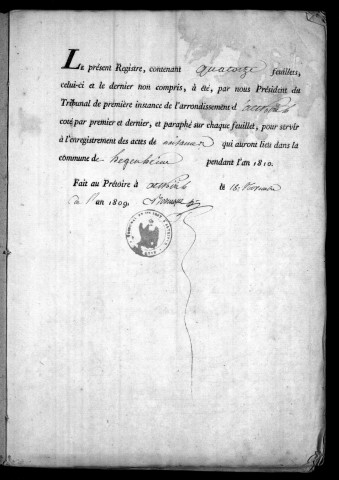 Le présent Registre, contenant quatorze feuillets,
celui-ci et le dernier non compris, à été, par nous Président du
Tribunal de première instance de l'arrondissement d'
coté par premier et dernier, et paraphé sur chaque feuillet, pour servir
à l'enregistrement des actes de naissances qui auront lieu dans la
commune de hegenheim pendant l'an 1810.
Fait au Prétoire à le 18
an 1809.